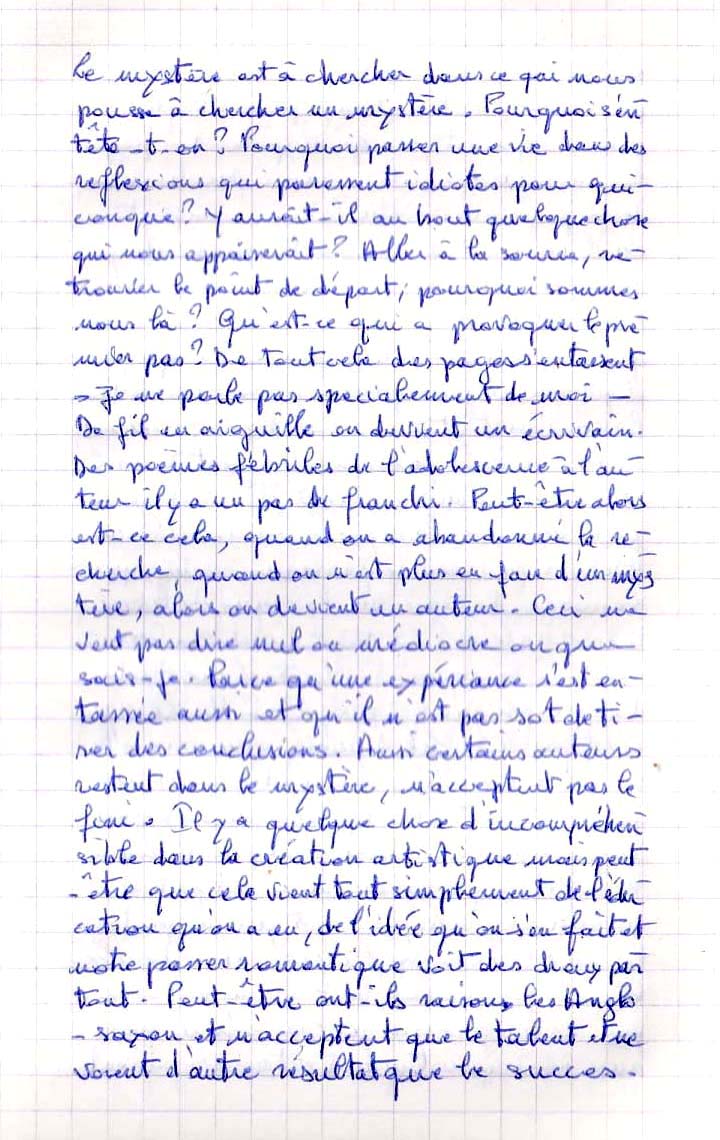 Le mystère est à chercher dans ce qui nous
pousse à chercher un mystère. Pourquoi s'en
tête-t-on ? Pourquoi passer une vie dans des
reflexions qui paressent idiotes pour qui-
conque ? Y aurait-il au bout quelque chose
qui nous appaiserait ? Aller à la source, re-
trouver le point de départ ; pourquoi sommes
nous là ? Qu'est-ce qui a provoquer le pre
mier pas ? De tout cela des pages s'entassent
- Je ne parle pas specialement de moi -
De fil en aiguille on devient un écrivain.
Des poèmes fébriles de l'adolescence à l'au
teur il y a un pas de franchi. Peut-être alors
est-ce cela, quand on a abandonné la re-
cherche, quand on n'est plus en face d'un mys
tère, alors on devient un auteur. Ceci ne
veut pas dire nul ou médiocre ou que
sais-je. Parce qu'une expériance s'est en-
tassée aussi et qu'il n'est pas sot de ti-
rer des conclusions. Aussi certains auteurs
restent dans le mystère, n'acceptent pas le
fini. Il y a quelque chose d'incompréhen
sible dans la création artistique mais peut
-être que cela vient tout simplement de l'édu
cation qu'on a eu, de l'idée qu'on s'en fait et
notre passer romantique voit des dieux par
tout. Peut-être ont-ils raisons les Anglo
-saxon et n'acceptent que le talent et ne
voient d'autre résultat que le succes.